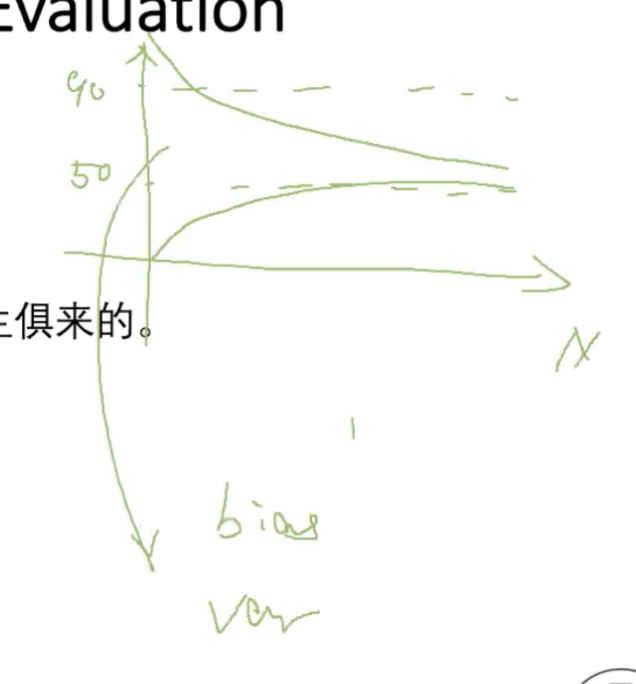 Evaluation
90
50
生俱来的。
N
bias
var